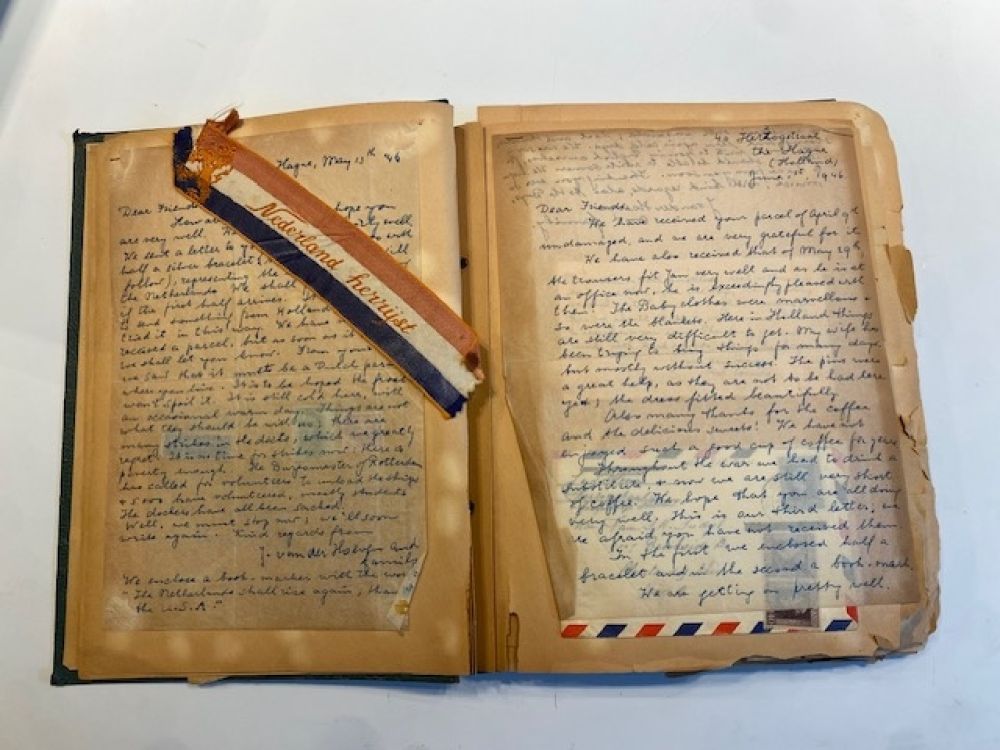 Hague, May 13th '46
Dear Friends
hope you
are very well.
We sent a letter to
half a silver bracelet
follow), representing the
the Netherlands. We shall
if the first half arrives.
and something from Holland
tried it in this way. We have
received a parcel, but as soon as
we shall let you know. From your
we said that it must be a Dutch
where you live. It is to be hoped the frost
won't spoil it. It is still cold here, with
an occasional warm day. Things are not
what they should be with us; there are
many strikes in the docks, which we greatly
regret. It is no time for strikes now; there is
poverty enough. The Burgomaster of Rotterdam
has called for volunteers to unload the ships
& 5000 have volunteered, mostly students
The dockers have all been sacked.
Well, we must stop now; we'll soon
write again. Kind regards from
J. van der Hoeven and
family
We enclose a book-marker with the words:
"The Netherlands shall rise again, than
the U.S.A."
Nederland herrijst
40 Hertogstraat
the Hague
(Holland)
June 1st, 1946
Dear Friends
We have received your parcel of April 9th
undamaged, and we are very grateful for it
We have also received that of May 29th,
the trousers fit Jan very well and as he is at
an office now, he is exceedingly pleased with
them. The Baby clothes were marvellous &
so were the blankets. Here in Holland things
are still very difficult to get. My wife has
been trying to buy things for many days,
but mostly without success. The pins were
a great help, as they are not to be had here
yet; the dress fitted beautifully
Also many thanks for the coffee
and the delicious sweets! We have not
enjoyed such a good cup of coffee for years
Throughout the war we had to drink a
substitute & now we are still very short
of coffee. We hope that you are all doing
very well. This is our third letter; we
are afraid you have not received them
In the first we enclosed half a
bracelet and in the second a book-mark.
We are getting on pretty well.